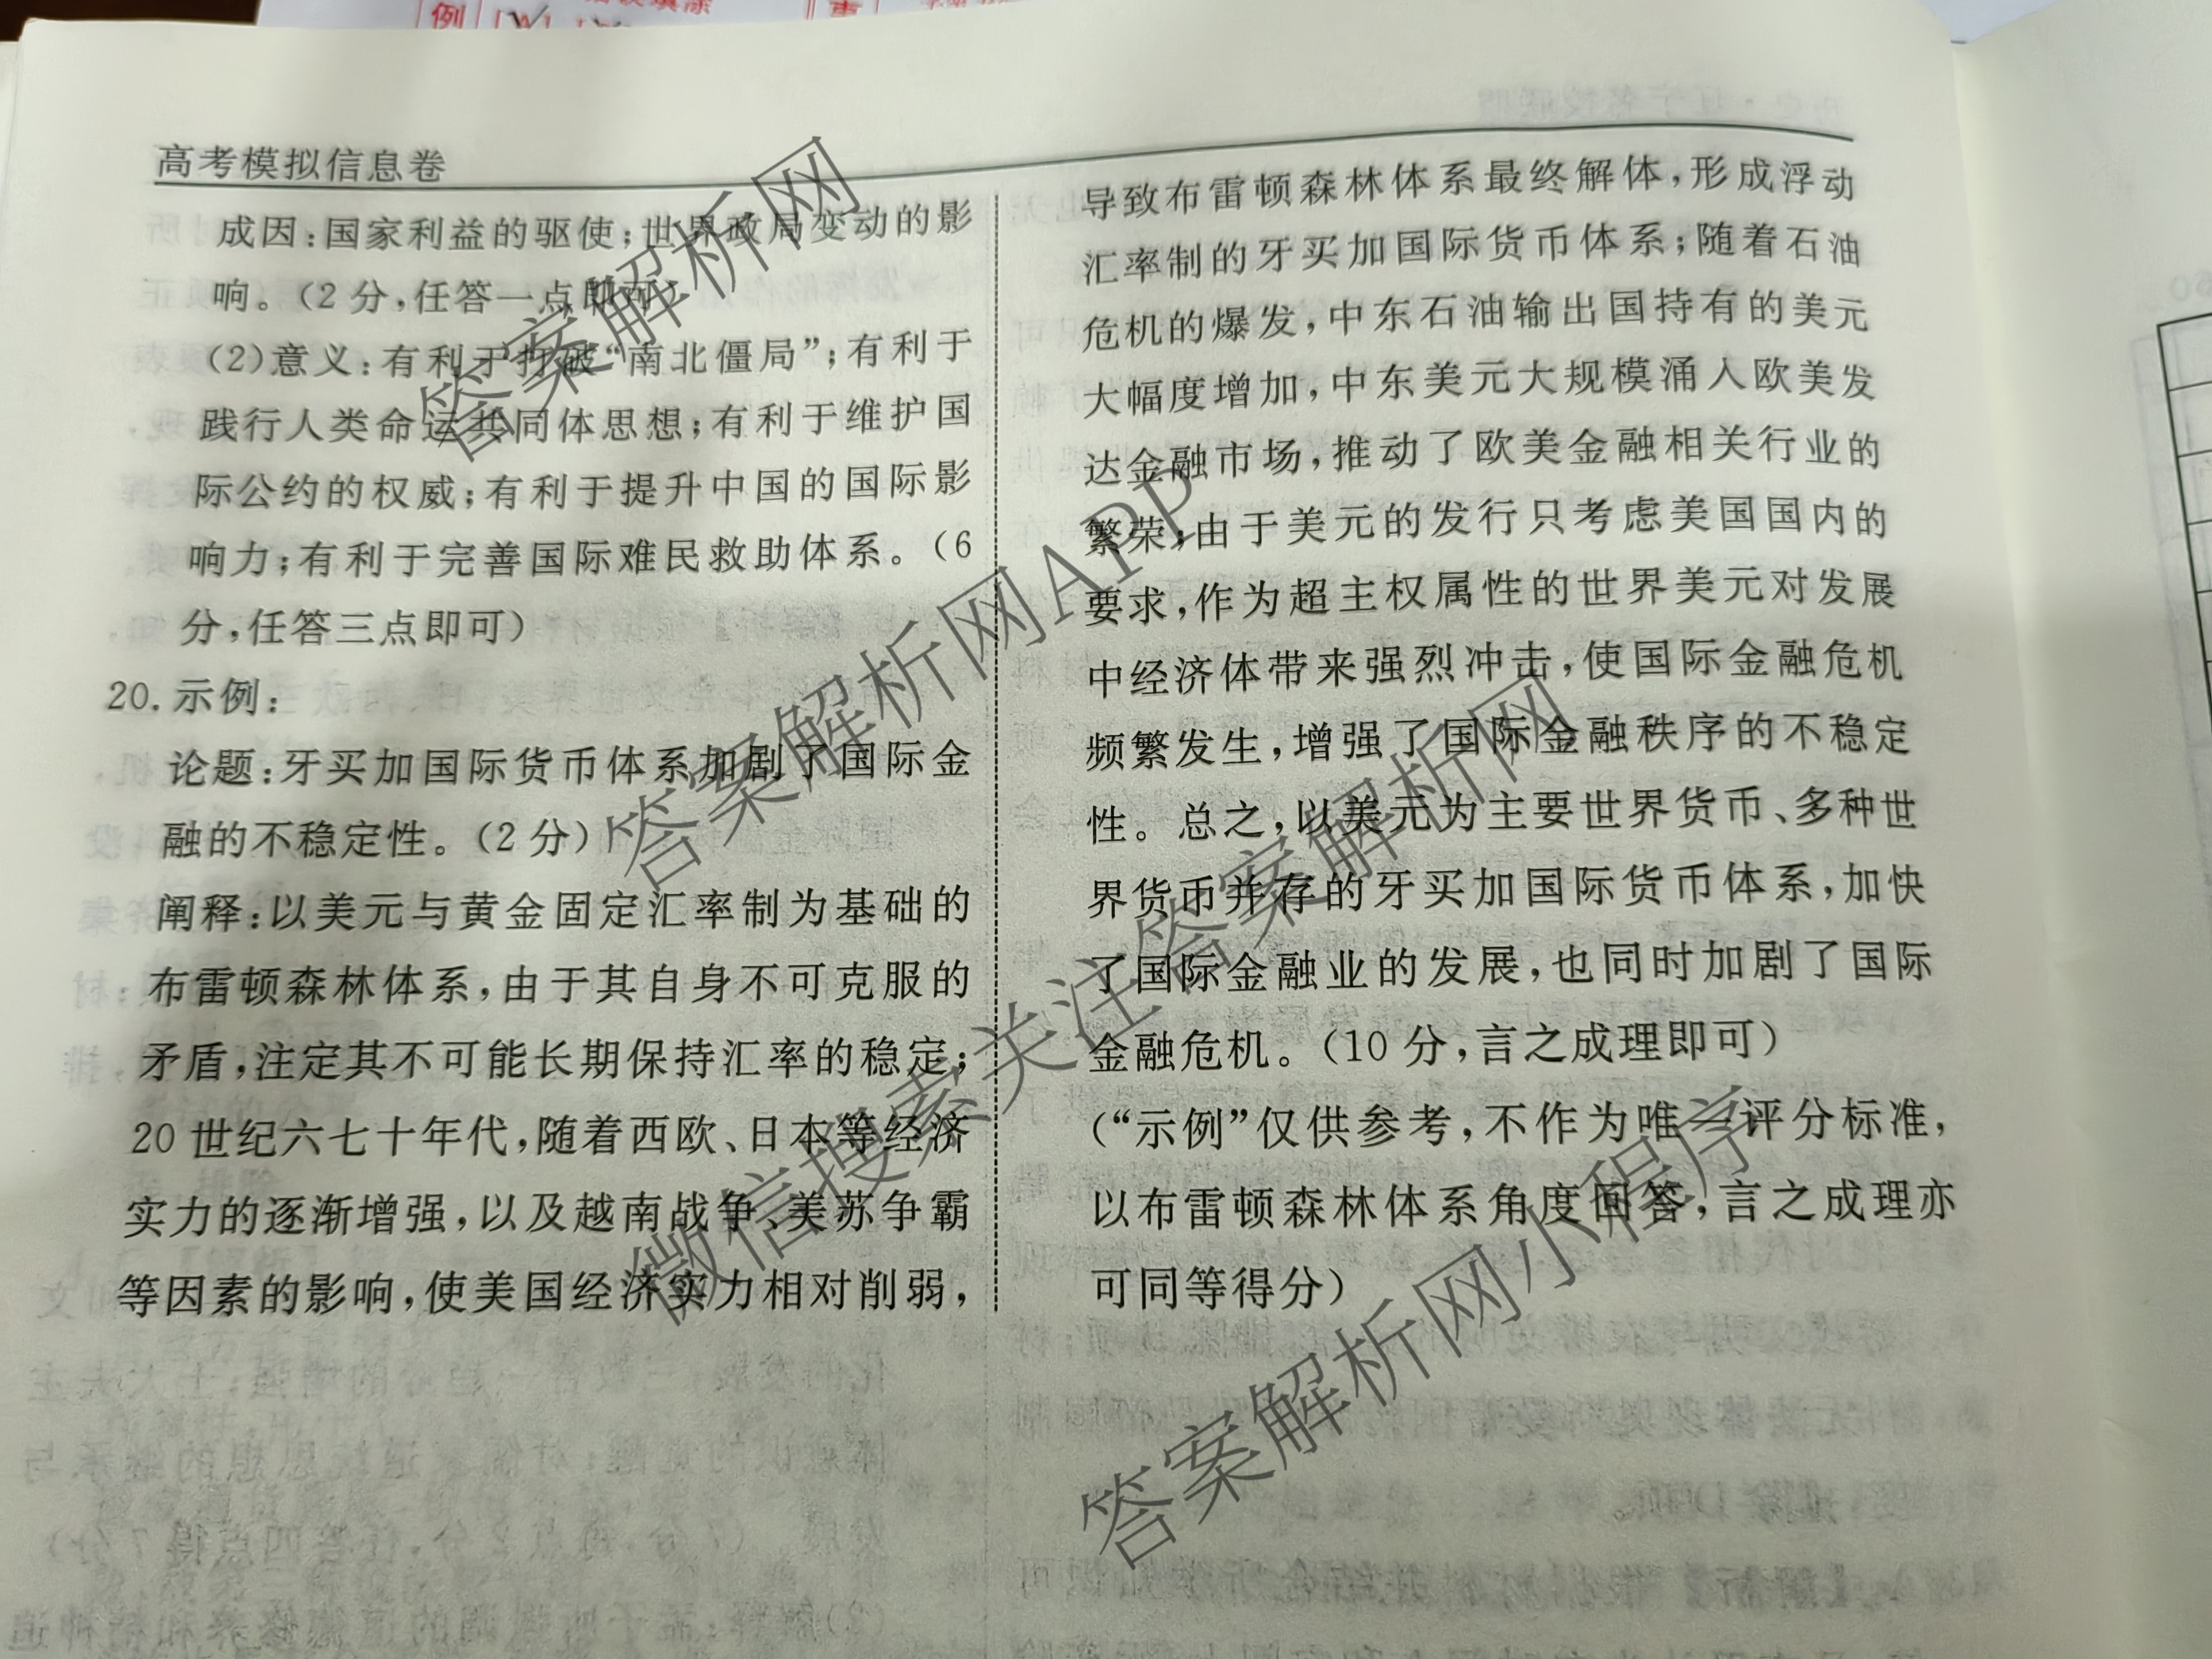 高考模拟信息卷
成因:国家利益的驱使;世界政局变动的影
响。(2分,任答一点即可)
(2)意义:有利于打破“南北僵局”;有利于
践行人类命运共同体思想;有利于维护国
际公约的权威;有利于提升中国的国际影
响力;有利于完善国际难民救助体系。(6
分,任答三点即可)
20.示例:
论题:牙买加国际货币体系加剧了国际金
融的不稳定性。(2分)
阐释:以美元与黄金固定汇率制为基础的
布雷顿森林体系,由于其自身不可克服的
矛盾,注定其不可能长期保持汇率的稳定;
20世纪六七十年代,随着西欧、日本等经济
实力的逐渐增强,以及越南战争、美苏争霸
等因素的影响,使美国经济实力相对削弱,
导致布雷顿森林体系最终解体,形成浮动
汇率制的牙买加国际货币体系;随着石油
危机的爆发,中东石油输出国持有的美元
大幅度增加,中东美元大规模涌入欧美发
达金融市场,推动了欧美金融相关行业的
繁荣;由于美元的发行只考虑美国国内的
要求,作为超主权属性的世界美元对发展
中经济体带来强烈冲击,使国际金融危机
频繁发生,增强了国际金融秩序的不稳定
性。总之,以美元为主要世界货币、多种世
界货币并存的牙买加国际货币体系,加快
了国际金融业的发展,也同时加剧了国际
金融危机。(10分,言之成理即可)
(“示例”仅供参考,不作为唯一评分标准,
以布雷顿森林体系角度回答,言之成理亦
可同等得分)
答案解析网
答案解析网APP
微信搜索关注答案解析网
答案解析网小程序